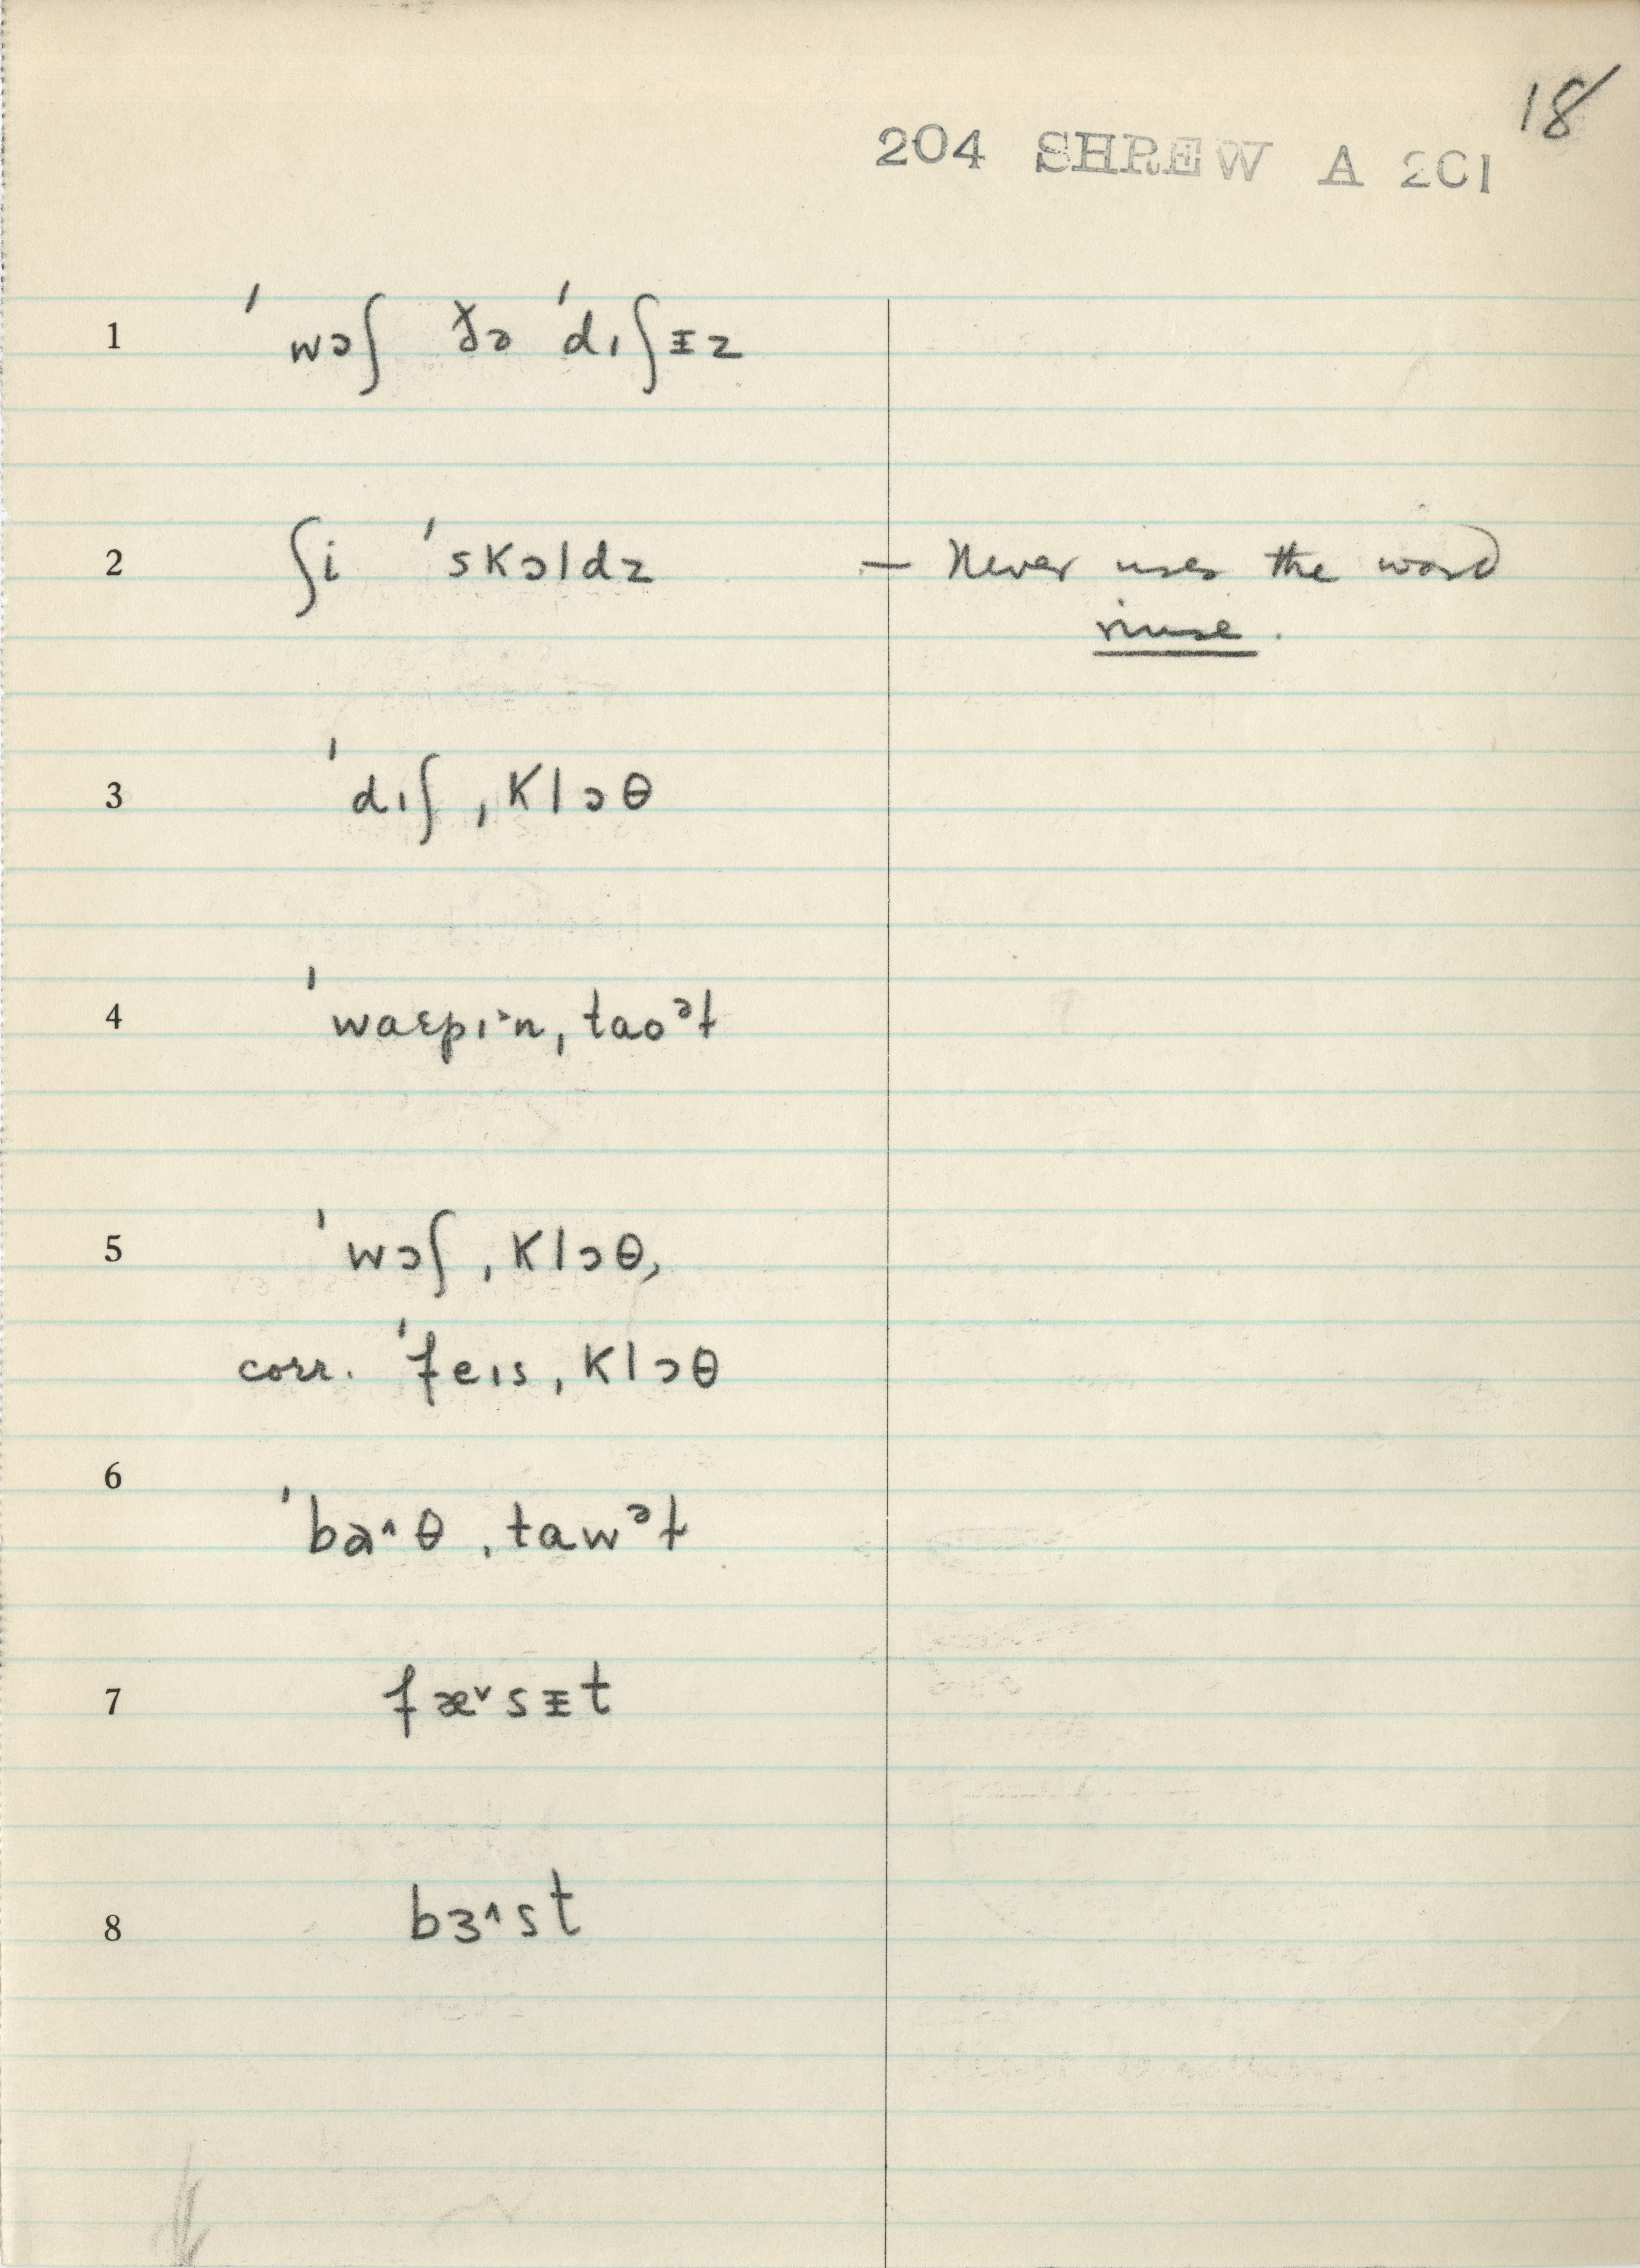 18
204 SHREW A 201
1 ˈwɔʃ ðə ˈdɪʃɪ̵z
2 ʃi ˈskɔldz — Never uses the word
rinse.
3 ˈdɪʃˌklɔθ
4 ˈwaɛpɪ˃nˌtaoᵊl
5 ˈwɔʃˌklɔθ,
corr. ˈfeɪsˌklɔθ
6 ˈba˄θˌtawᵊl
7 fæ˅sɪ̵t
8 bɜ˄st